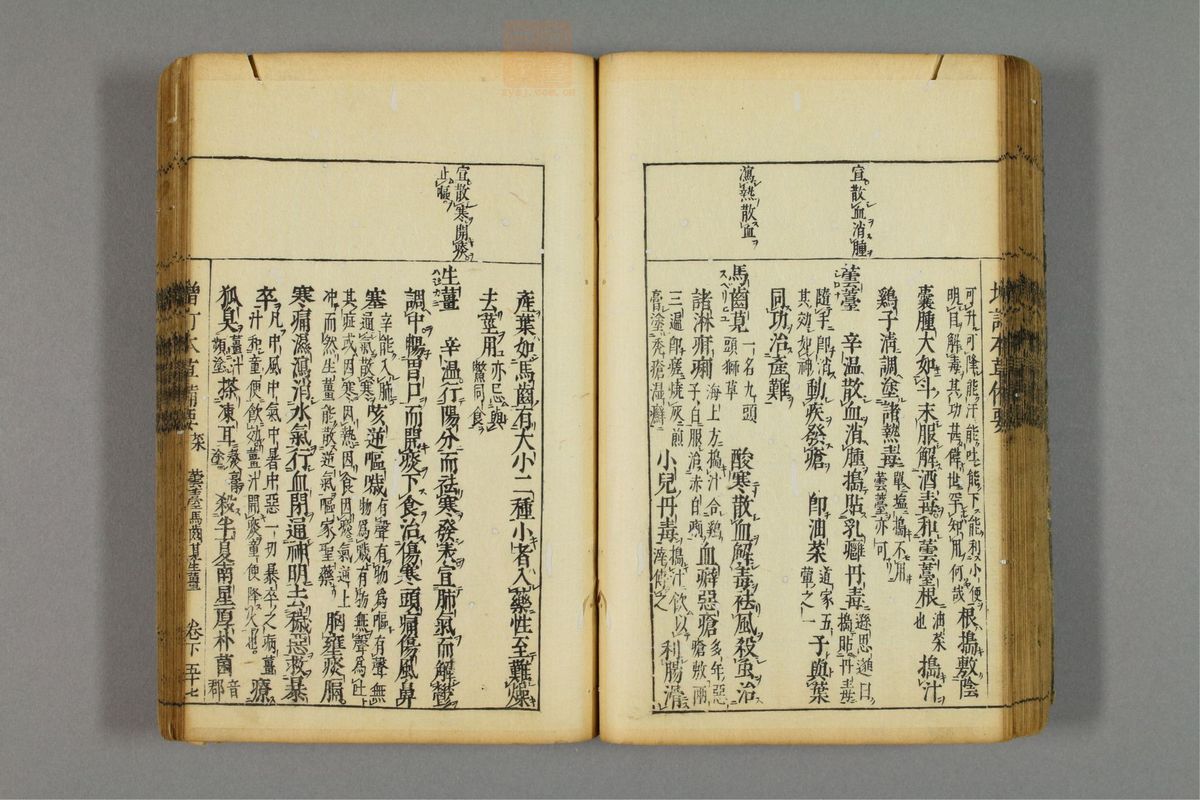 宜散血消腫
瀉熱散血
可升可降能汗能吐能下能利小便
明目解毒其功甚偉世罕知用何哉
根搗敷陰
囊腫大如斗末服解酒毒和蕓薹根
油菜也
搗汁
鷄子清調塗諸熱毒
單盬搗不用
蕓薹亦可
蕓薹 辛溫散血消腫搗貼乳癰丹毒
搗貼丹毒
隨手即消
其効如神
動疾發瘡 即油菜
道家五
葷之一
子與葉
同功治產難
馬齒莧
スベリヒユ
一名九頭
頭獅草
酸寒散血解毒祛風殺虫治
諸淋疳痢
海上方搗汁合鷄
子白服治赤白痢
血癖惡瘡
多年惡
瘡敷兩
三遍即瘥燒灰煎
膏塗禿瘡濕癬
小兒丹毒
搗汁飲以
滓傅之
利腸滑
宜散寒開痰
止嘔
產葉如馬齒有大小二種小者入藥性至難燥
去莖用
亦忌與
鱉同食
生薑 辛溫行陽分而祛寒發表宣肺氣而解鬱
調中暢胃口而開痰下食治傷寒頭痛傷風鼻
塞
辛能入肺
通氣散寒
咳逆嘔噦
有聲有物爲嘔有聲無
物爲噦有物無聲爲吐
其症或因寒因熱因食因痰氣逆上
冲而然生薑能散逆氣嘔家聖藥
胸壅痰膈
寒痛濕瀉消水氣行血閉通神明去穢惡救暴
卒
凡中風中氣中暑中惡一切暴卒之病薑
汁和童便飲効薑汁開痰童便降火也
療
狐臭
薑汁
頻塗
搽凍耳
熬膏
塗
殺半夏南星厚朴菌
音
郡
增訂本草備要 菜 蕓薹馬齒莧生薑 卷下 五十七